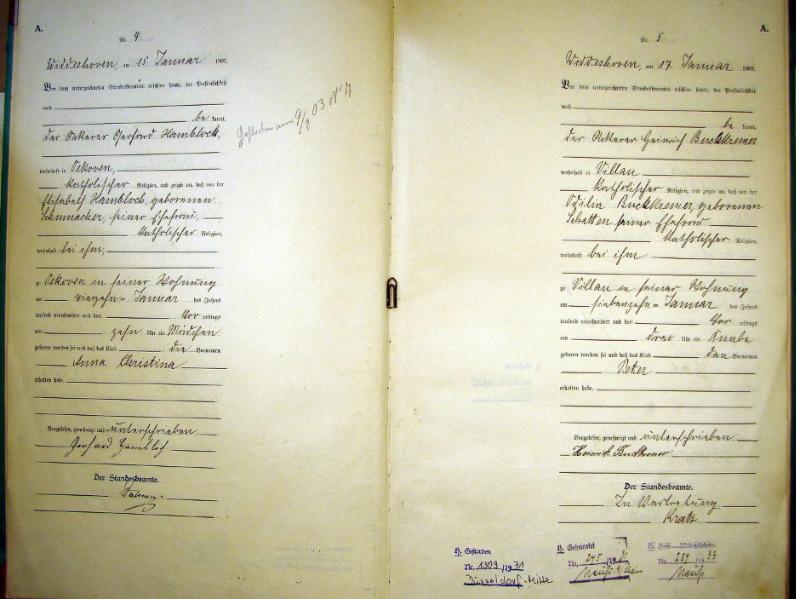 A.
Nr. 4
Widdeshoven, am 15 Januar 190
Vor dem unterzeichneten Standesbeamten erschien heute, der Persönlichkeit
nach
be kannt,
der Ackerer Gerhard Hambloch,
wohnhaft in Oekoven,
katholischer Religion, und zeigte an, daß von der
Elisabeth Hambloch, geborenen
Schumacher, seiner Ehefrau,
katholischer Religion,
wohnhaft bei ihm,
zu Oekoven in seiner Wohnung
am vierzehn= Januar des Jahres
tausend neunhundert und drei Vor mittags
um zehn Uhr ein Mädchen
geboren worden sei und daß das Kind die Vornamen
Anna Christina
erhalten habe.
Vorgelesen, genehmigt und unterschrieben
Gerhard Hambloch
Der Standesbeamte.
Gestorben am 9/2 03 N° 7
A.
Nr. 5
Widdeshoven, am 17 Januar 1903.
Vor dem unterzeichneten Standesbeamten erschien heute, der Persönlichkeit
nach
be kannt,
der Ackerer Heinrich Buckkremer
wohnhaft in Villau
katholischer Religion, und zeigte an, daß von der
Buckkremer, geborenen
Schatten seiner Ehefrau
katholischer Religion,
wohnhaft bei ihm
zu Villau in seiner Wohnung
am siebenzehn= Januar des Jahres
tausend neunhundert und drei Vor mittags
um drei Uhr ein Knabe
geboren worden sei und daß das Kind den Vornamen
Peter
erhalten habe.
Vorgelesen, genehmigt und unterschrieben
Heinrich Buckkremer
Der Standesbeamte.
In Vertretung
Kratz
Gestorben
Nr. 1303/1931
Düsseldorf-Mitte
Geheiratet
Nr. 245/19
Neuß
Nr. 289/1933
Neuß